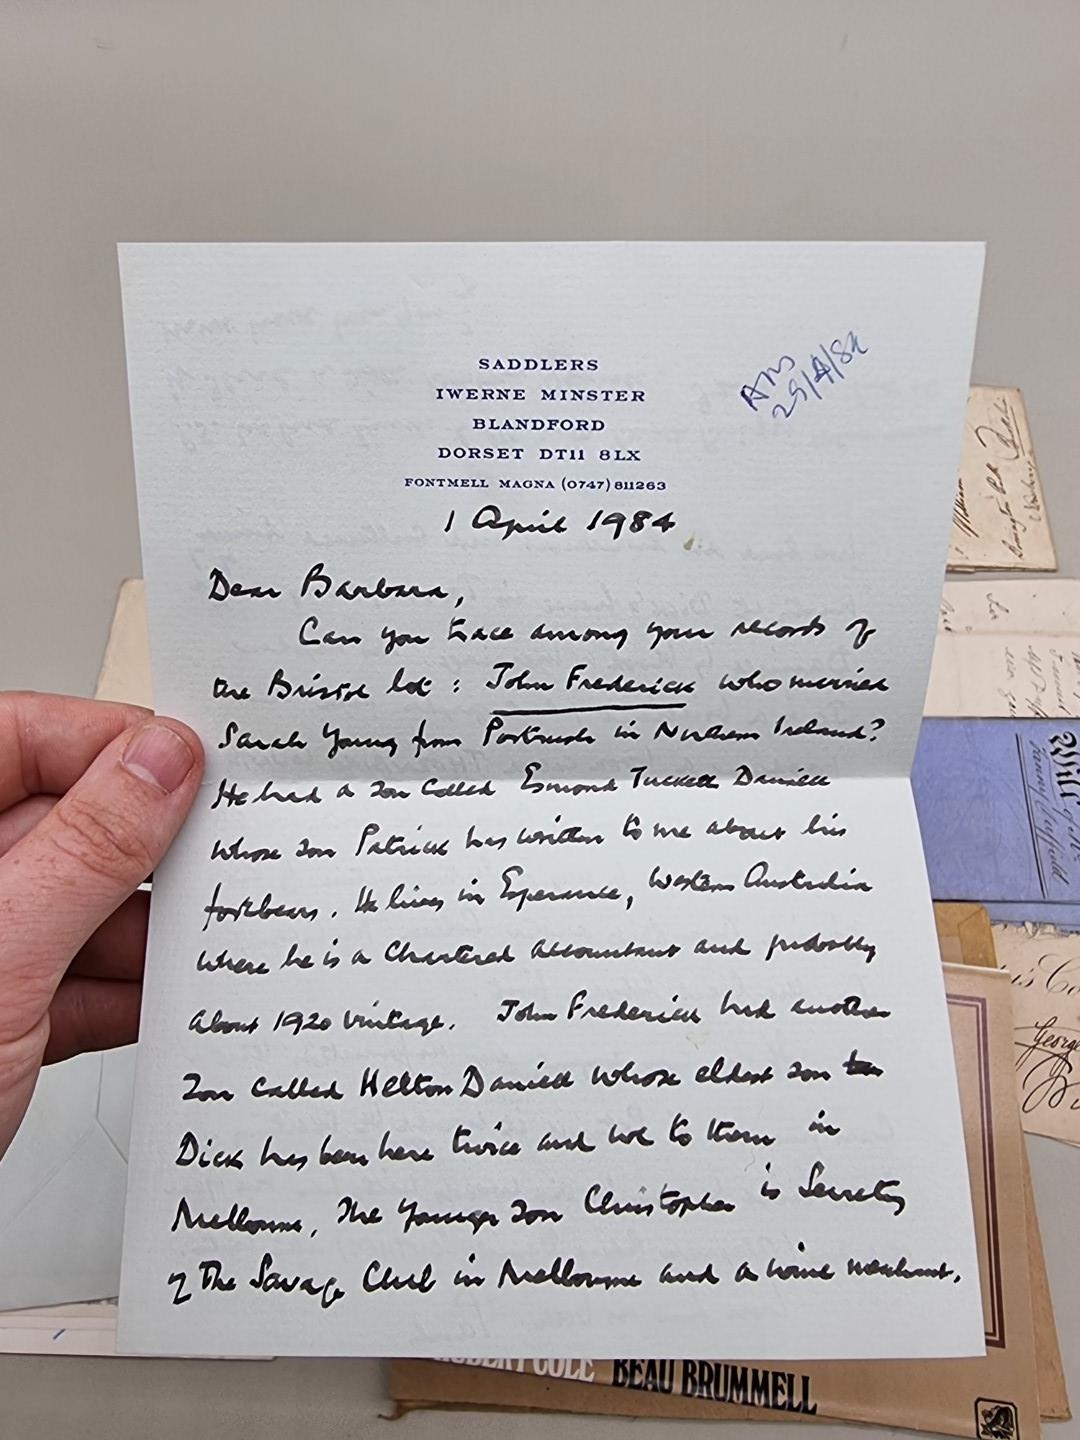 SADDLERS
IWERNE MINSTER
BLANDFORD
DORSET DT11 8LX
FONTMELL MAGNA (0747) 811263
Ans
29/4/84
1 April 1984
Dear Barbara,
Can you trace among your records of
the Bristol lot : John Frederick who married
Sarah Young from Portrush in Northern Ireland?
He had a son called Esmond Tuckett Daniell
whose son Patrick has written to me about his
forebears. He lives in Esperance, Western Australia
where he is a Chartered Accountant and probably
about 1920 vintage. John Frederick had another
son called Helton Daniell whose eldest son
Dick has been here twice and we to them in
Melbourne, The younger son Christopher is Secretary
of the Savage Club in Melbourne and a wine merchant.
William
Will
George
ROBERT COLE BEAU BRUMMELL